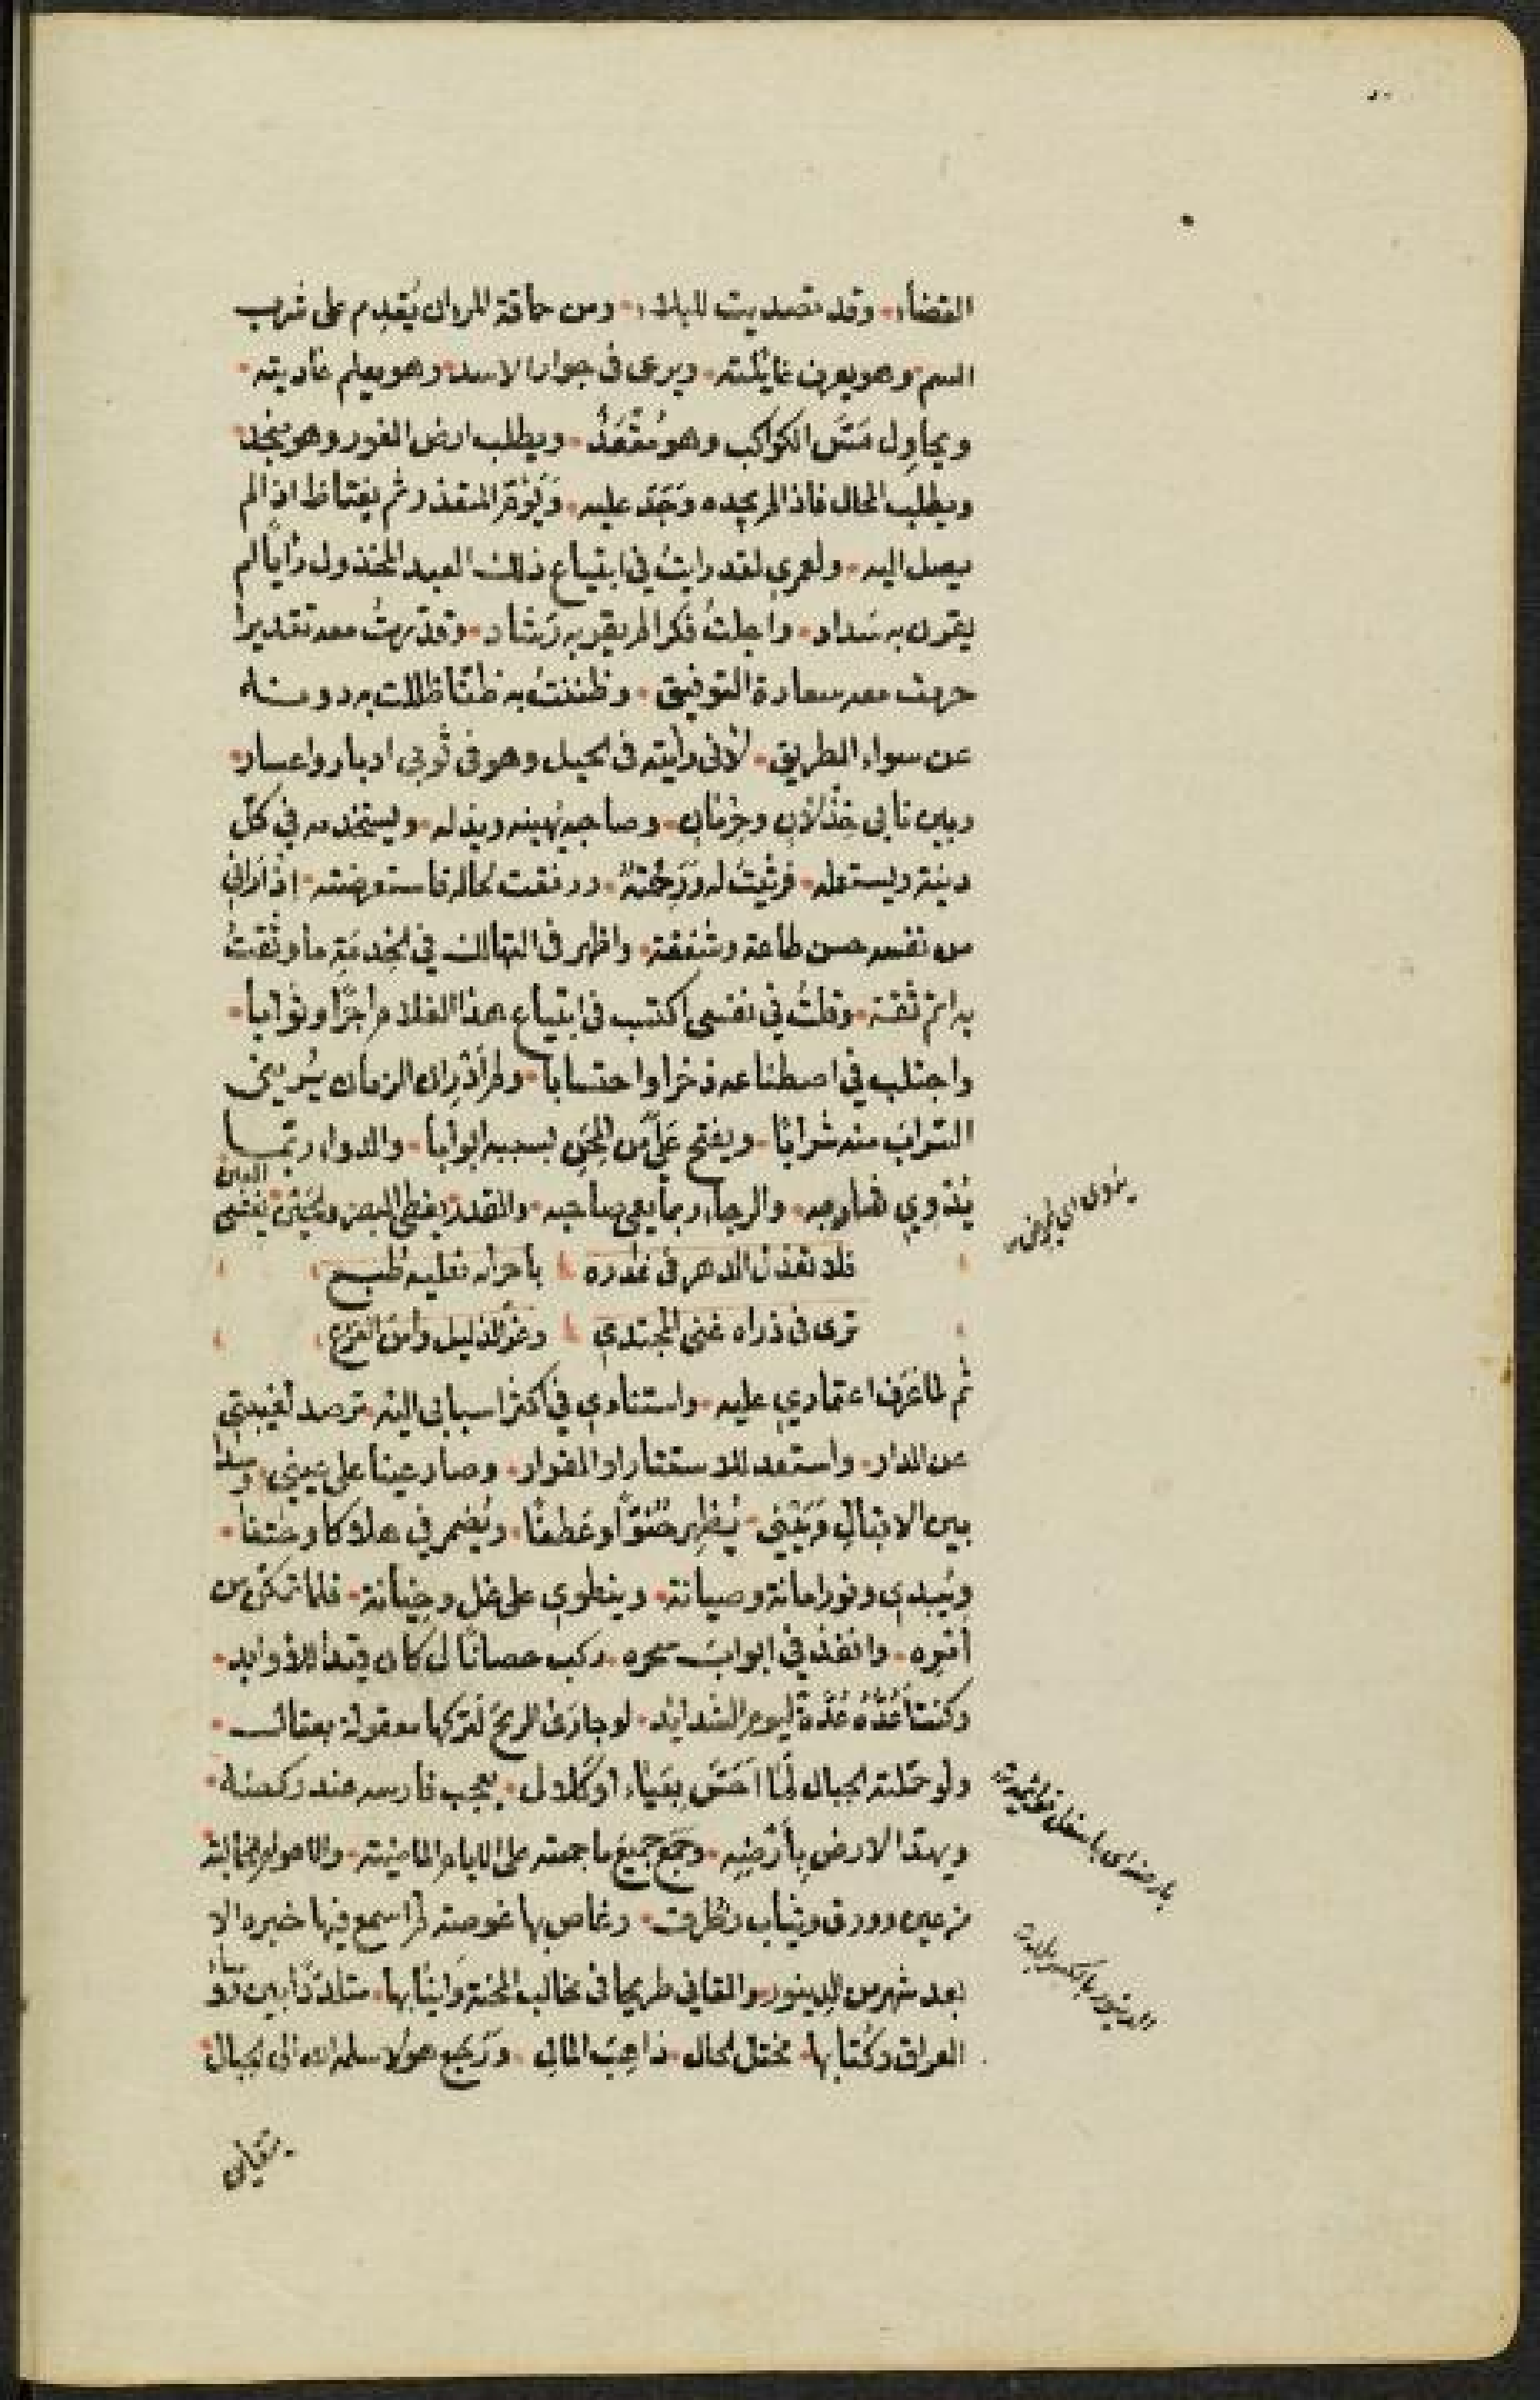 القضاء وقد تصديت للبلاء ومن حماقة المرء ان يُقدِم على شرب
السم وهو يعرف غايلته ويرعى فى جوار الاسد وهو يعلم عاديته
ويحاوِل مَسَّ الكواكب وهو مُقْعَدٌ ويطلب ارض الغور وهو منجد
ويطلب المحال فاذا لم يجده وَجَدَ عليه ثم يغتاظ اذا لم
يصل اليه ولعمري لقد رايتُ في ابتياع ذلك العبد المخذول رأيًا لم
يقرن به سَداد واجلتُ فكرا لم يقرن به رَشاد وقدّرتُ معه تقديرا
حرمت معه سعادة التوفيق وظننتُ به ظنًّا ظللت به دونـه
عن سواء الطريق لأنى رأيته فى الجبل وهو فى ثوبى ادبار واعسار
وبين نابى خِذْلانٍ وصاحبه يهينه ويذله ويستخدمه في كل
دنية ويستعمله فرثيتُ له ورَحِمْتهُ ورققت لحاله فاستعرضته اذ أرانى
من نفسه حسن طاعة وشفقة واظهر فى التهالك في الخِدمَةِ ما وثقت
به اتم ثقة وقلتُ في نفسى اكتسب فى ابتياع هذا الغلام اجرًا وثوابا
واجتلب في اصطناعه ذخرا واحتسابا ولم أدْرِ ان الزمان
التراب منه شرابًا ويفتح عَلَىَّ من المِحَن بسببه ابوابا والدواء ربّمـا
يُذْوِي شاربه والرجاء ربما يعمى صاحبه والقدر يغطى البصر
العين
فلا تعذل الدهر فى غدره بأحراره فعليه طبع
ترى فى ذراه غنى المجتدي وعزّ الذليل وأمن الفزع
ثم لما عَرَف اعتمادي عليه واستنادى في اكثر اسبابى اليه ترصد لغيبتي
عن الدار واستعد للاستتار او الفرار وصار عينا على عيني وسدًّا
بين الاقبالِ وَبَيْنى يُظهِر حُنُوًّا وعَطفًا ويُضمر في هلاكا وحتفا
ويُبدى وفور امانة وصيانة وينطوي على غل وخيانة فلما تمكّن من
أمْرِه وانفذ في ابواب سحره ركب حصانًا لى كان قيدا للأوابد
وكنت أعُدُّه عُدَّةً ليوم الشدايد لو جارَى الريحَ لتركها معقولة بعقالـ
ولو حمّلته الجبال لَمَا اَحَسَّ بِعَياء او كلال يعجب فارسه عند ركضـه
ويهتدا الارض بِأَرْضِهِ وجمع جَميعَ ما جمعته على الايام الماضية والاعوام الخالية
من عين وورق وثياب وطُرَف وغاص بها غوصة لم اسمع فيها خبره الا
بعد شهر من الدينور والقانى طريحا فى مخالب المحنة وانيابها متلددا بين
العراق وكُتّابها مختل الحال ذاهبَ المال وَرَجع هؤلاء سلمهم الله الى الجبال
يذوى اى يمرض